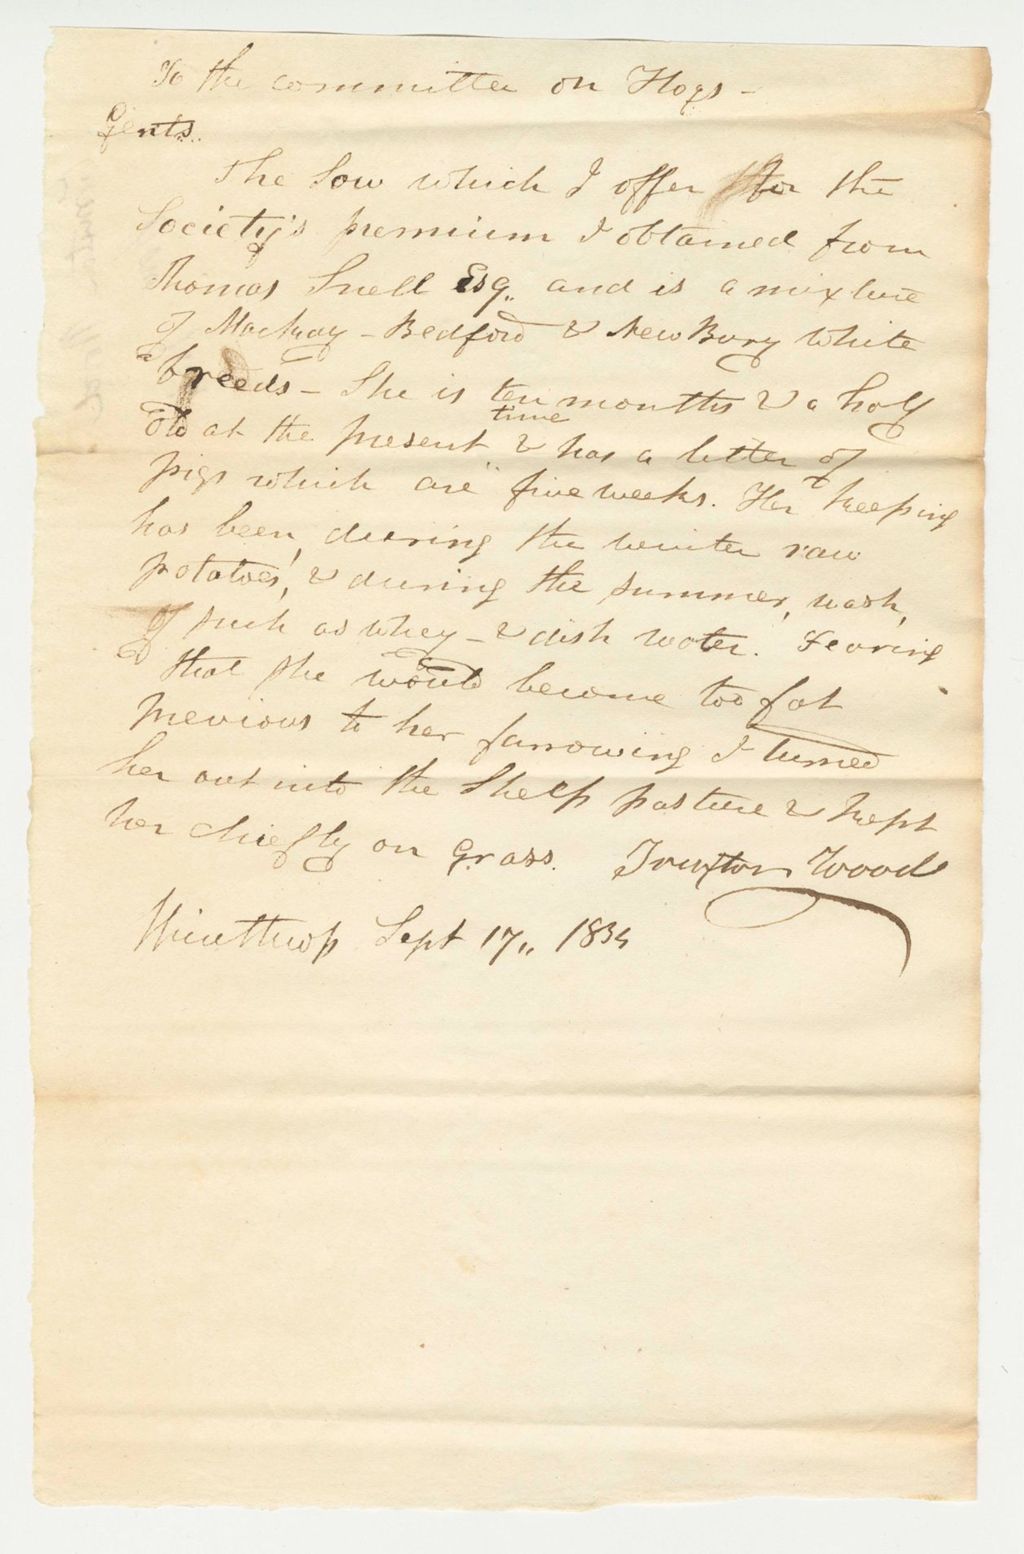 To the committee on Hogs -
Gents.
The Sow which I offer for the
Society's premium I obtained from
Thomas Snell Esq,, and is a mixture
of Mackay - Bedford & NewBury White
breeds - She is ten months & a half
old at the present time & has a letter of
pigs which are five weeks. Her keeping
has been, during the winter raw
potatoes, & during the summer, wash,
of such as whey - & dish water. Fearing
that she would become too fat
previous to her farrowing I turned
her out into the Sheep pasture & kept
her chiefly on grass. Truxton Wood
Winthrop Sept 17,, 1834